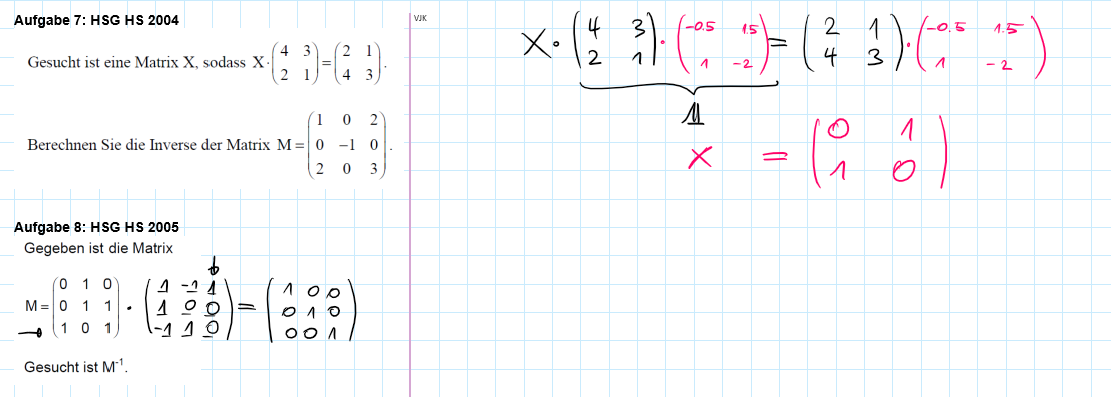 Aufgabe 7: HSG HS 2004
Gesucht ist eine Matrix X, sodass X·(4 3; 2 1)=(2 1; 4 3).
Berechnen Sie die Inverse der Matrix M=(1 0 2; 0 −1 0; 2 0 3).
Aufgabe 8: HSG HS 2005
Gegeben ist die Matrix
M=(0 1 0; 0 1 1; 1 0 1)·(1 -1 1; 1 0 0; -1 1 0)=(1 0 0; 0 1 0; 0 0 1)
Gesucht ist M⁻¹.
VJK
X·(4 3; 2 1)·(-0.5 1.5; 1 -2)=(2 1; 4 3)·(-0.5 1.5; 1 -2)
𝟙
X = (0 1; 1 0)